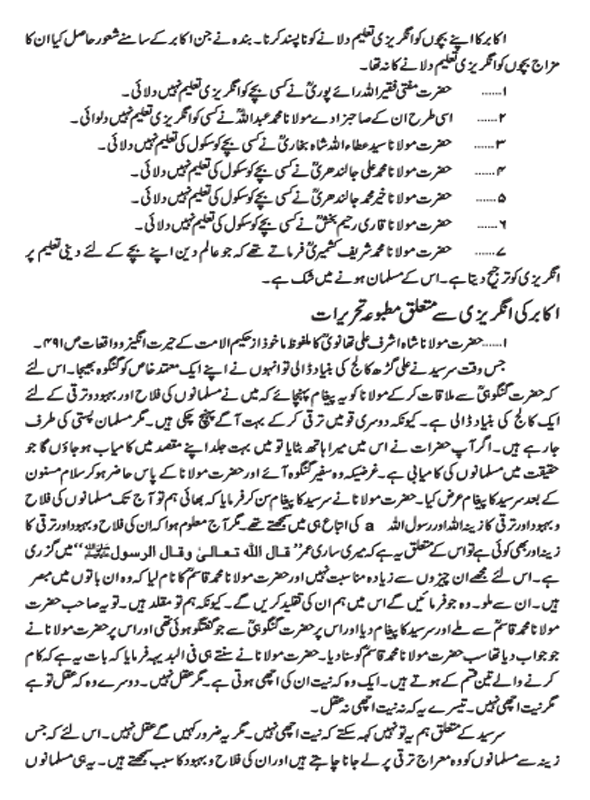 اکابر کا اپنے بچوں کو انگریزی تعلیم دلانے کو ناپسند کرنا۔ بندہ نے جن اکابر کے سامنے شعور حاصل کیا ان کا
مزاج بچوں کو انگریزی تعلیم دلانے کا نہ تھا۔
۱…… حضرت مفتی فقیر اللہ رائے پوریؒ نے کسی بچے کو انگریزی تعلیم نہیں دلائی۔
۲…… اسی طرح ان کے صاحبزادے مولانا محمد عبداللہؒ نے کسی کو انگریزی تعلیم نہیں دلوائی۔
۳…… حضرت مولانا سید عطاء اللہ شاہ بخاریؒ نے کسی بچے کو سکول کی تعلیم نہیں دلائی۔
۴…… حضرت مولانا محمد علی جالندھریؒ نے کسی بچے کو سکول کی تعلیم نہیں دلائی۔
۵…… حضرت مولانا خیر محمد جالندھریؒ نے کسی بچے کو سکول کی تعلیم نہیں دلائی۔
۶…… حضرت مولانا قاری رحیم بخشؒ نے کسی بچے کو سکول کی تعلیم نہیں دلائی۔
۷…… حضرت مولانا محمد شریف کشمیریؒ فرماتے تھے کہ جو عالم دین اپنے بچے کے لئے دینی تعلیم پر
انگریزی کو ترجیح دیتا ہے۔ اس کے مسلمان ہونے میں شک ہے۔
اکابر کی انگریزی سے متعلق مطبوعہ تحریرات
۱……حضرت مولانا شاہ اشرف علی تھانویؒ کا ملفوظ ماخوذ از حکیم الامت کے حیرت انگیز و واقعات ص۴۹۱۔
جس وقت سرسید نے علی گڑھ کالج کی بنیاد ڈالی تو انہوں نے اپنے ایک معتمد خاص کو گنگوہ بھیجا۔ اس لئے
کہ حضرت گنگوہیؒ سے ملاقات کرکے مولانا کو یہ پیغام پہنچائے کہ میں نے مسلمانوں کی فلاح اور بہبود و ترقی کے لئے
ایک کالج کی بنیاد ڈالی ہے۔ کیونکہ دوسری قومیں ترقی کرکے بہت آگے پہنچ چکی ہیں۔ مگر مسلمان پستی کی طرف
جارہے ہیں۔ اگر آپ حضرات نے اس میں میرا ہاتھ بٹایا تو میں بہت جلد اپنے مقصد میں کامیاب ہوجاؤں گا جو
حقیقت میں مسلمانوں کی کامیابی ہے۔ غرضیکہ وہ سفیر گنگوہ آئے اور حضرت مولانا کے پاس حاضر ہوکر سلام مسنون
کے بعد سرسید کا پیغام عرض کیا۔ حضرت مولانا نے سرسید کا پیغام سن کر فرمایا کہ بھائی ہم تو آج تک مسلمانوں کی فلاح
و بہبود اور ترقی کا زینہ اللہ اور رسول اللہ a کی اتباع ہی میں سمجھتے تھے۔ مگر آج معلوم ہوا کہ ان کی فلاح و بہبود اور ترقی کا
زینہ اور بھی کوئی ہے تو اس کے متعلق یہ ہے کہ میری ساری عمر ’’قال اللہ تعالیٰ وقال الرسول ﷺ‘‘ میں گزری
ہے۔ اس لئے مجھے ان چیزوں سے زیادہ مناسبت نہیں اور حضرت مولانا محمد قاسمؒ کا نام لیا کہ وہ ان باتوں میں مبصر
ہیں۔ ان سے ملو۔ وہ جو فرمائیں گے اس میں ہم ان کی تقلید کریں گے۔ کیونکہ ہم تو مقلد ہیں۔ تو یہ صاحب حضرت
مولانا محمد قاسمؒ سے ملے اور سرسید کا پیغام دیا اور اس پر حضرت گنگوہیؒ سے جو گفتگو ہوئی تھی اور اس پر حضرت مولانا نے
جو جواب دیا تھا سب حضرت مولانا محمد قاسمؒ کو سنا دیا۔ حضرت مولانا نے سنتے ہی فی البدیہہ فرمایا کہ بات یہ ہے کہ کام
کرنے والے تین قسم کے ہوتے ہیں۔ ایک وہ کہ نیت ان کی اچھی ہوتی ہے۔ مگر عقل نہیں۔ دوسرے وہ کہ عقل تو ہے
مگر نیت اچھی نہیں۔ تیسرے یہ کہ نہ نیت اچھی نہ عقل۔
سرسید کے متعلق ہم یہ تو نہیں کہہ سکتے کہ نیت اچھی نہیں۔ مگر یہ ضرور کہیں گے عقل نہیں۔ اس لئے کہ جس
زینہ سے مسلمانوں کو وہ معراج ترقی پر لے جانا چاہتے ہیں اور ان کی فلاح و بہبود کا سبب سمجھتے ہیں۔ یہ ہی مسلمانوں